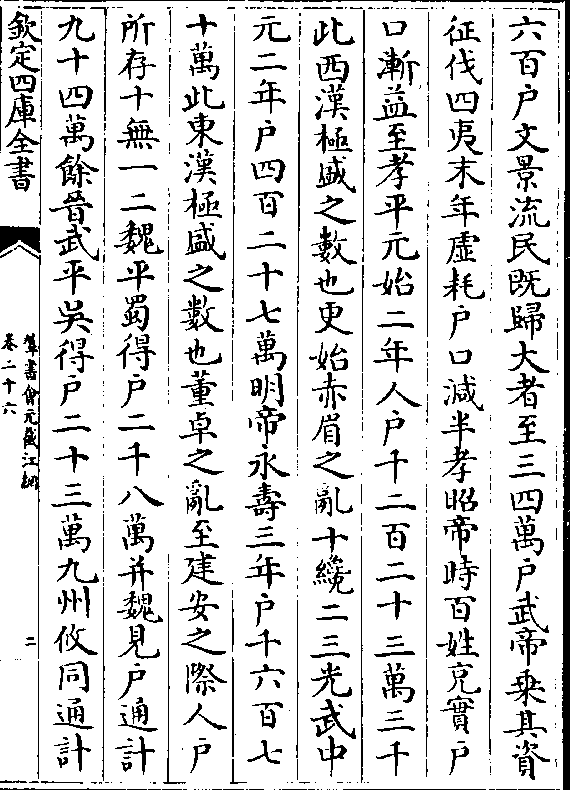 六百户文景流民既歸大者至三四萬户武帝乗其資
征伐四夷末年虚耗户口減半孝昭帝時百姓充實户
口漸益至孝平元始二年人户千二百二十三萬三千
此西漢極盛之數也更始赤眉之亂十纔二三光武中
元二年户四百二十七萬明帝永壽三年户千六百七
十萬此東漢極盛之數也董卓之亂至建安之際人户
所存十無一二魏平蜀得户二十八萬并魏見户通計
九十四萬餘晉武平吳得户二十三萬九州攸同通計
欽定四庫全書
羣書會元截江網
卷二十六
二